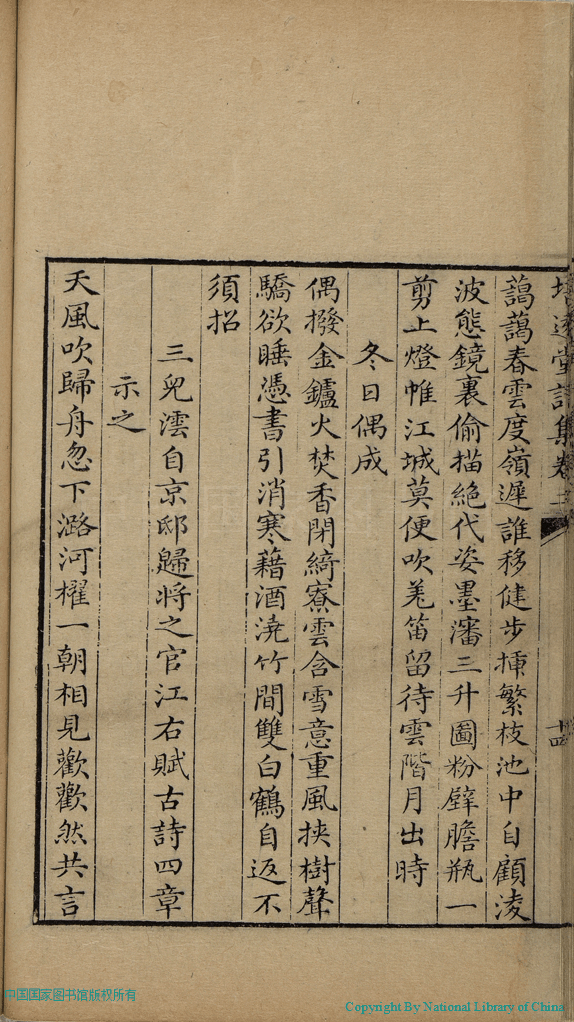 藹藹春雲度嶺遲誰移健步揷繁枝池中自顧淩
波態鏡裏偷描絶代姿墨瀋三升圖粉壁膽瓶一
剪上燈帷江城莫便吹羌笛留待雲階月出時
冬日偶成
偶撥金鑪火焚香閉綺寮雲含雪意重風挾樹聲
驕欲睡憑書引消寒藉酒澆竹間雙白鶴自返不
須招
三兒澐自京邸歸將之官江右賦古詩四章
示之
天風吹歸舟忽下潞河櫂一朝相見歡歡然共言
中国国家图书馆版权所有
Copyright By National Library of China